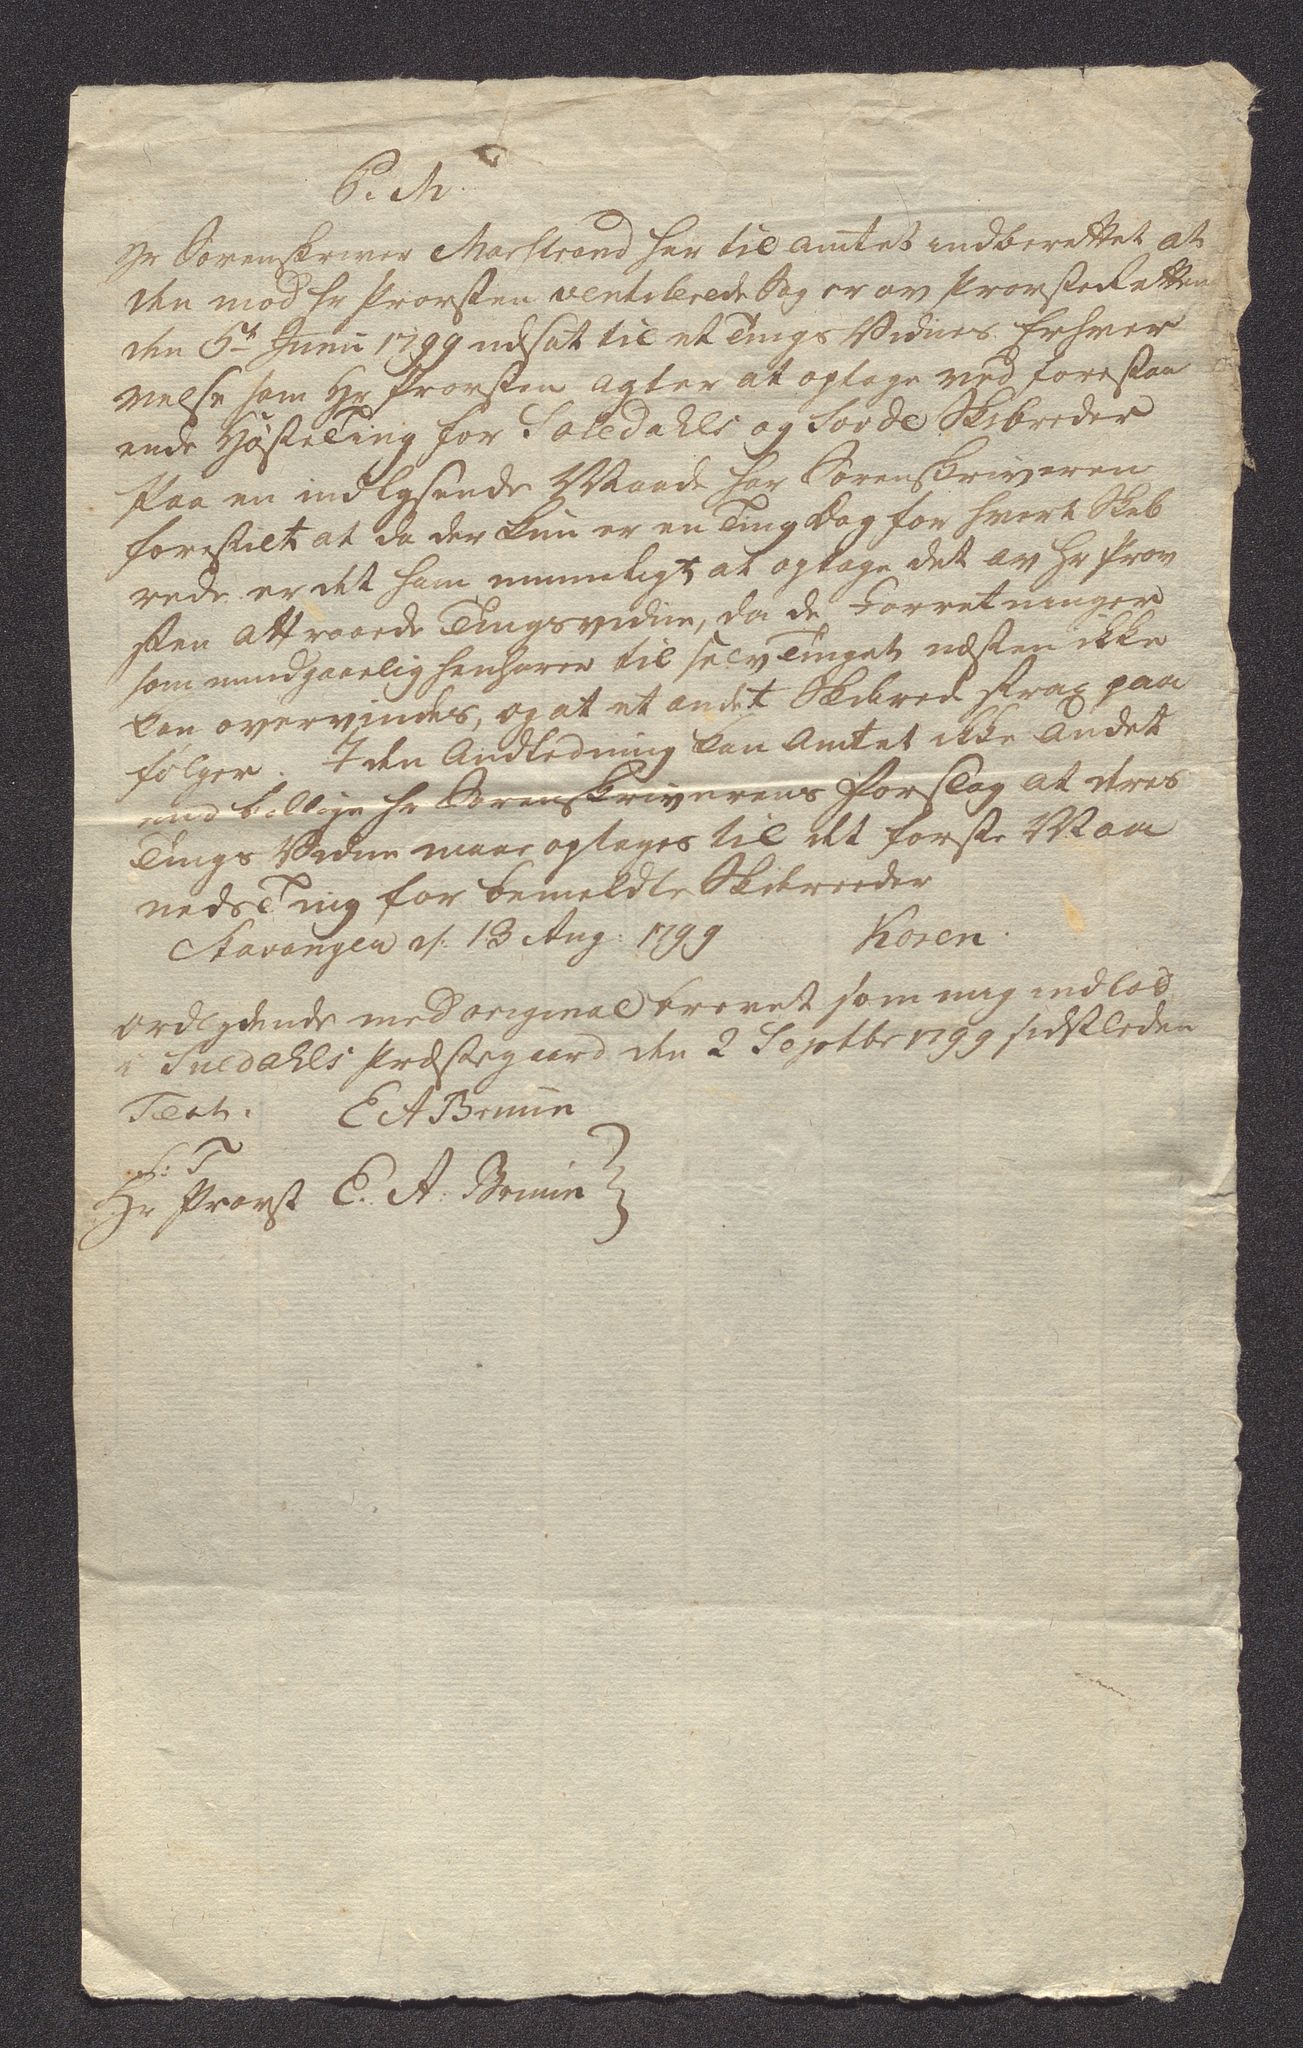 P. M.
Hr Sorenskriver Marstrand har til amtet indberettet at
den mod Hr Provsten ventilerede Sag er av ProvsteRetten
den 5t Junii 1799 udsat til et Tings Vidnes Erhver
velse som Hr Provsten agter at optage ved forestaa
ende HösteTing for Suledahls og Sovde Skibreder
Paa en indlysende Maade har Sorenskriveren
forestilt at da der kun er en Ting Dag for hvert Skib
rede er det ham umueligt at optage det av Hr Prov
sten attraaede Tingsvidne, da de Forretninger
som uundgaaelig henhører til selv Tinget næsten ikke
kan overvindes, og at et andet Skibred strax paa
følger. I den Andledning kan Amtet ikke Andet
end billige Hr Sorenskriverens Forslag at deres
Tings Vidne maae optages til det første Maa
nedsTing for bemeldte Skibreeder
Stavanger d. 13 Aug. 1799 Koren.
ordlydende med original brevet som mig indlod
i Suledahls Præstegaard den 2 Septbr 1799 sidstleden
Test. E A Bruun
S. T
Hr Provst E. A. Bruun